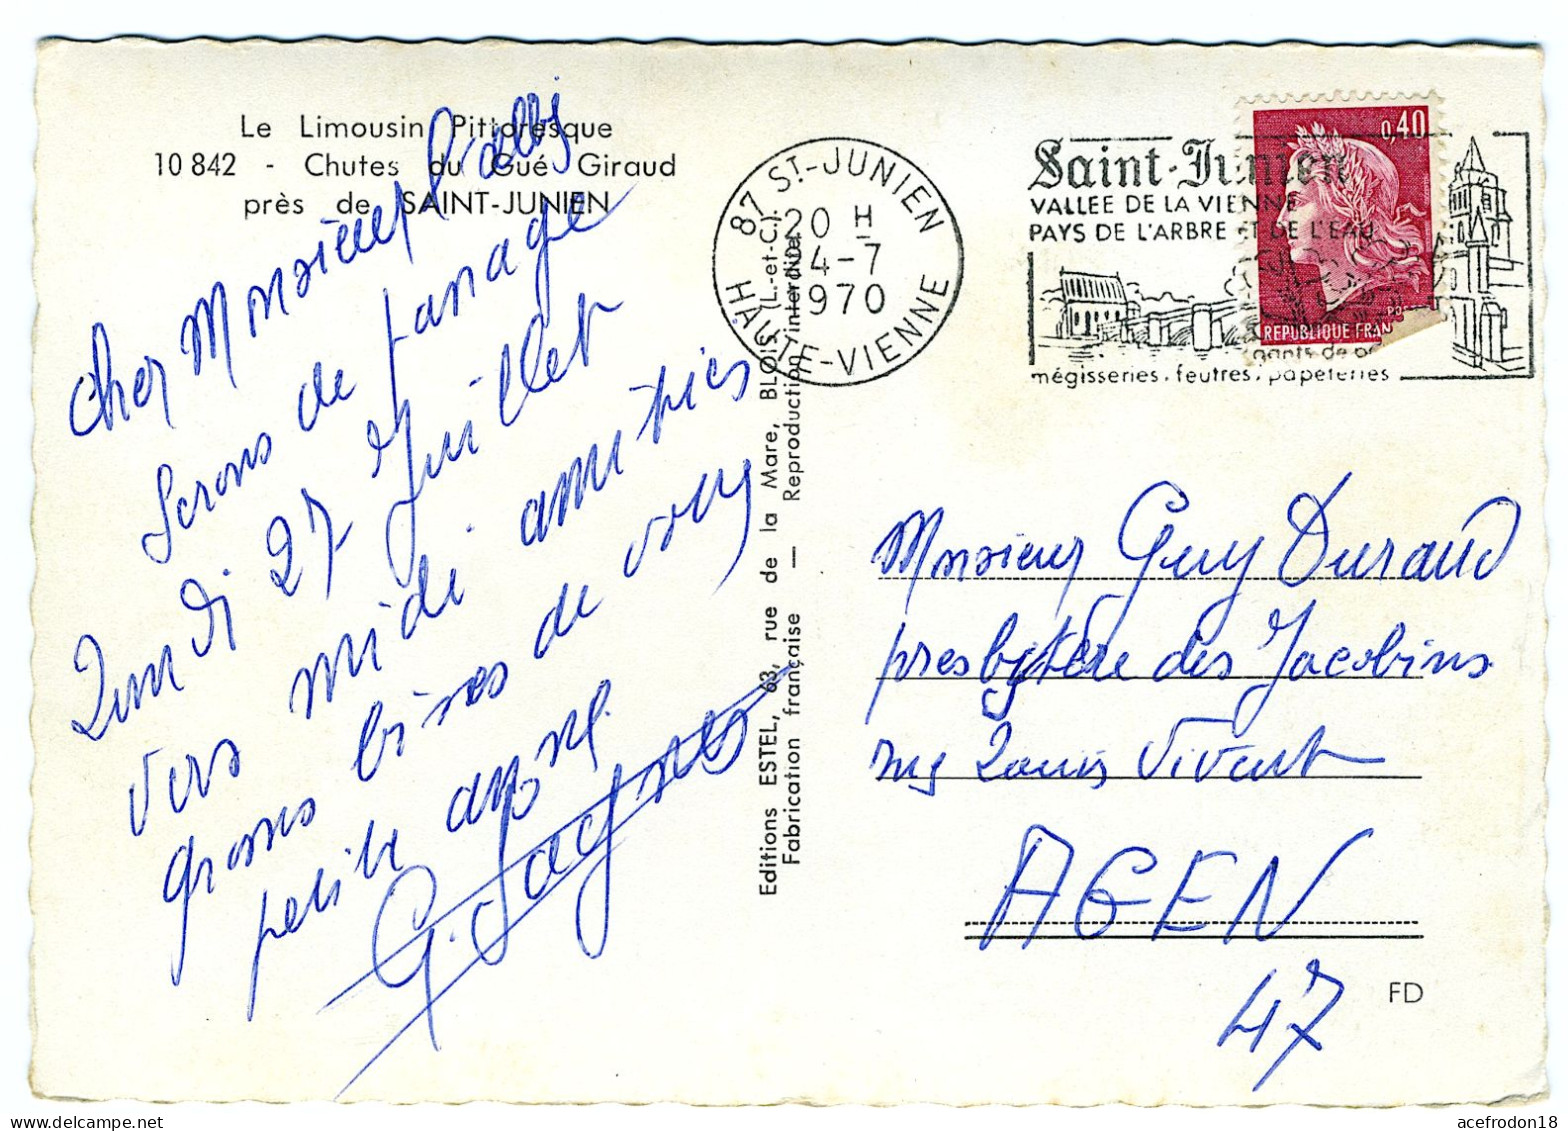 Le Limousin Pittoresque
10 842 - Chutes du Gué Giraud
près de SAINT-JUNIEN
cher Monsieur l'abbé
serons de passage
Lundi 27 Juillet
vers midi amitiés
grosses bises de vous
petite
87 ST-JUNIEN
20 H
4-7
1970
HAUTE-VIENNE
Saint-Junien
VALLEE DE LA VIENNE
PAYS DE L'ARBRE ET DE L'EAU
gants de
mégisseries, feutres, papeteries
0,40
REPUBLIQUE FRAN
Editions ESTEL, 63, rue de la Mare, BLOIS (L.-et-C.).
Fabrication française — Reproduction interdite
Monsieur Guy Durand
presbytère des Jacobins
rue Louis Vivent
AGEN
47
FD
acefrodon18